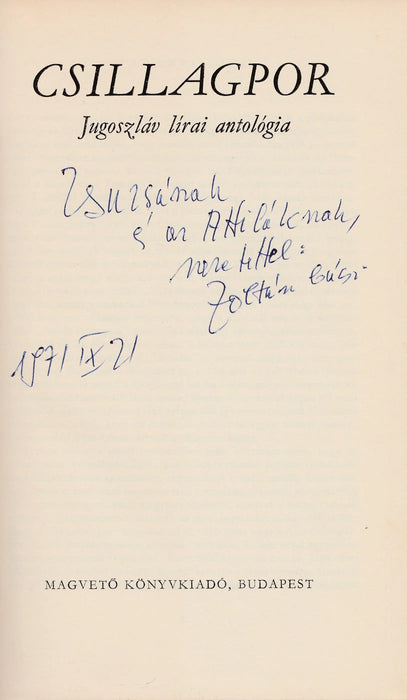 CSILLAGPOR
Jugoszláv lírai antológia
Zsuzsának
és az Attiláknak,
szeretettel:
Zoltán bácsi
1971 IX 21
MAGVETŐ KÖNYVKIADÓ, BUDAPEST